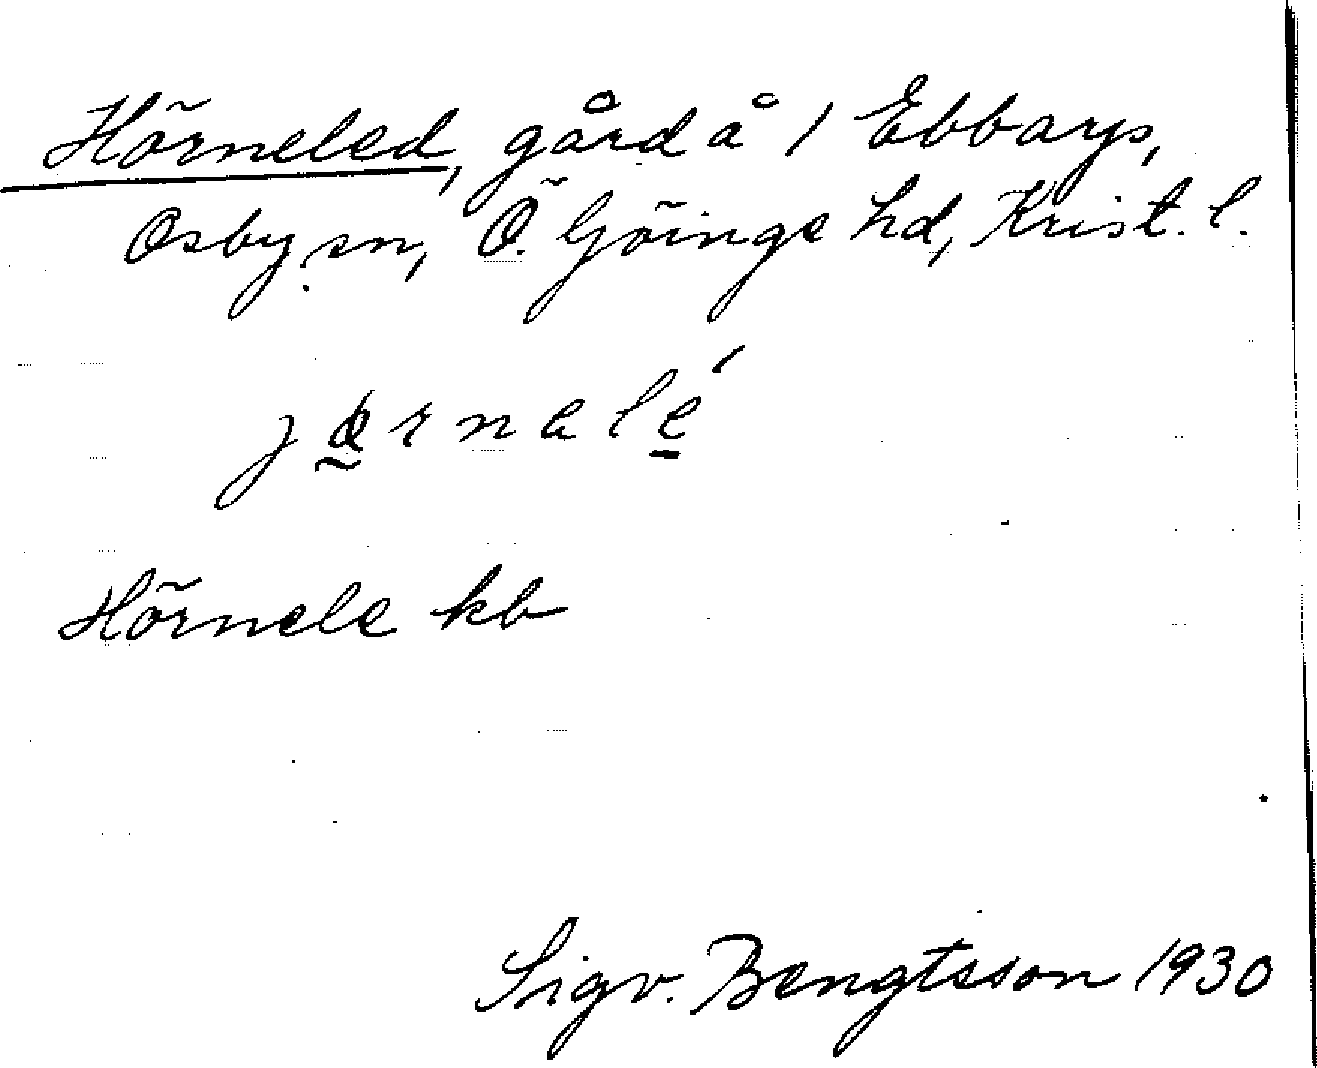 Hörneled, gård å 1 Ebbarps,
Osby sn, Ö. Göinge hd, Krist. l.
Hörnele kb
Sigv. Bengtsson 1930